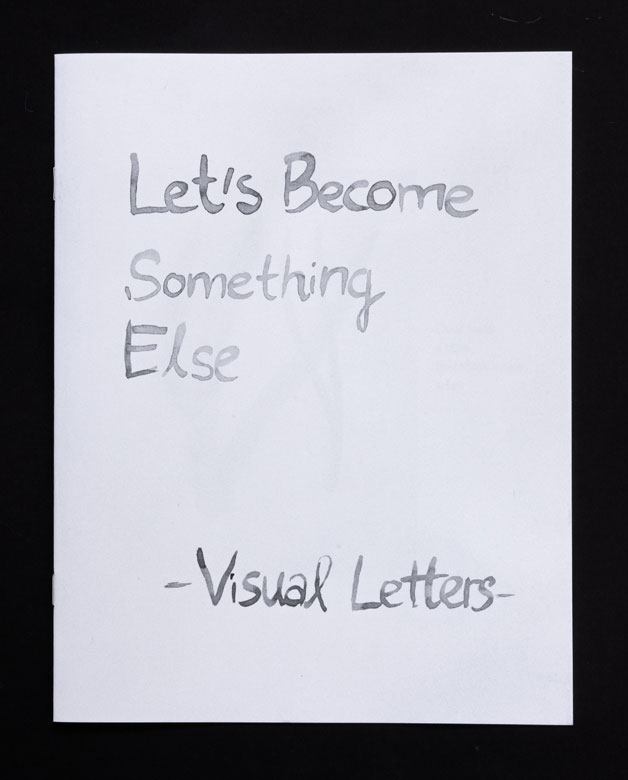 Let's Become
Something
Else
-Visual Letters-